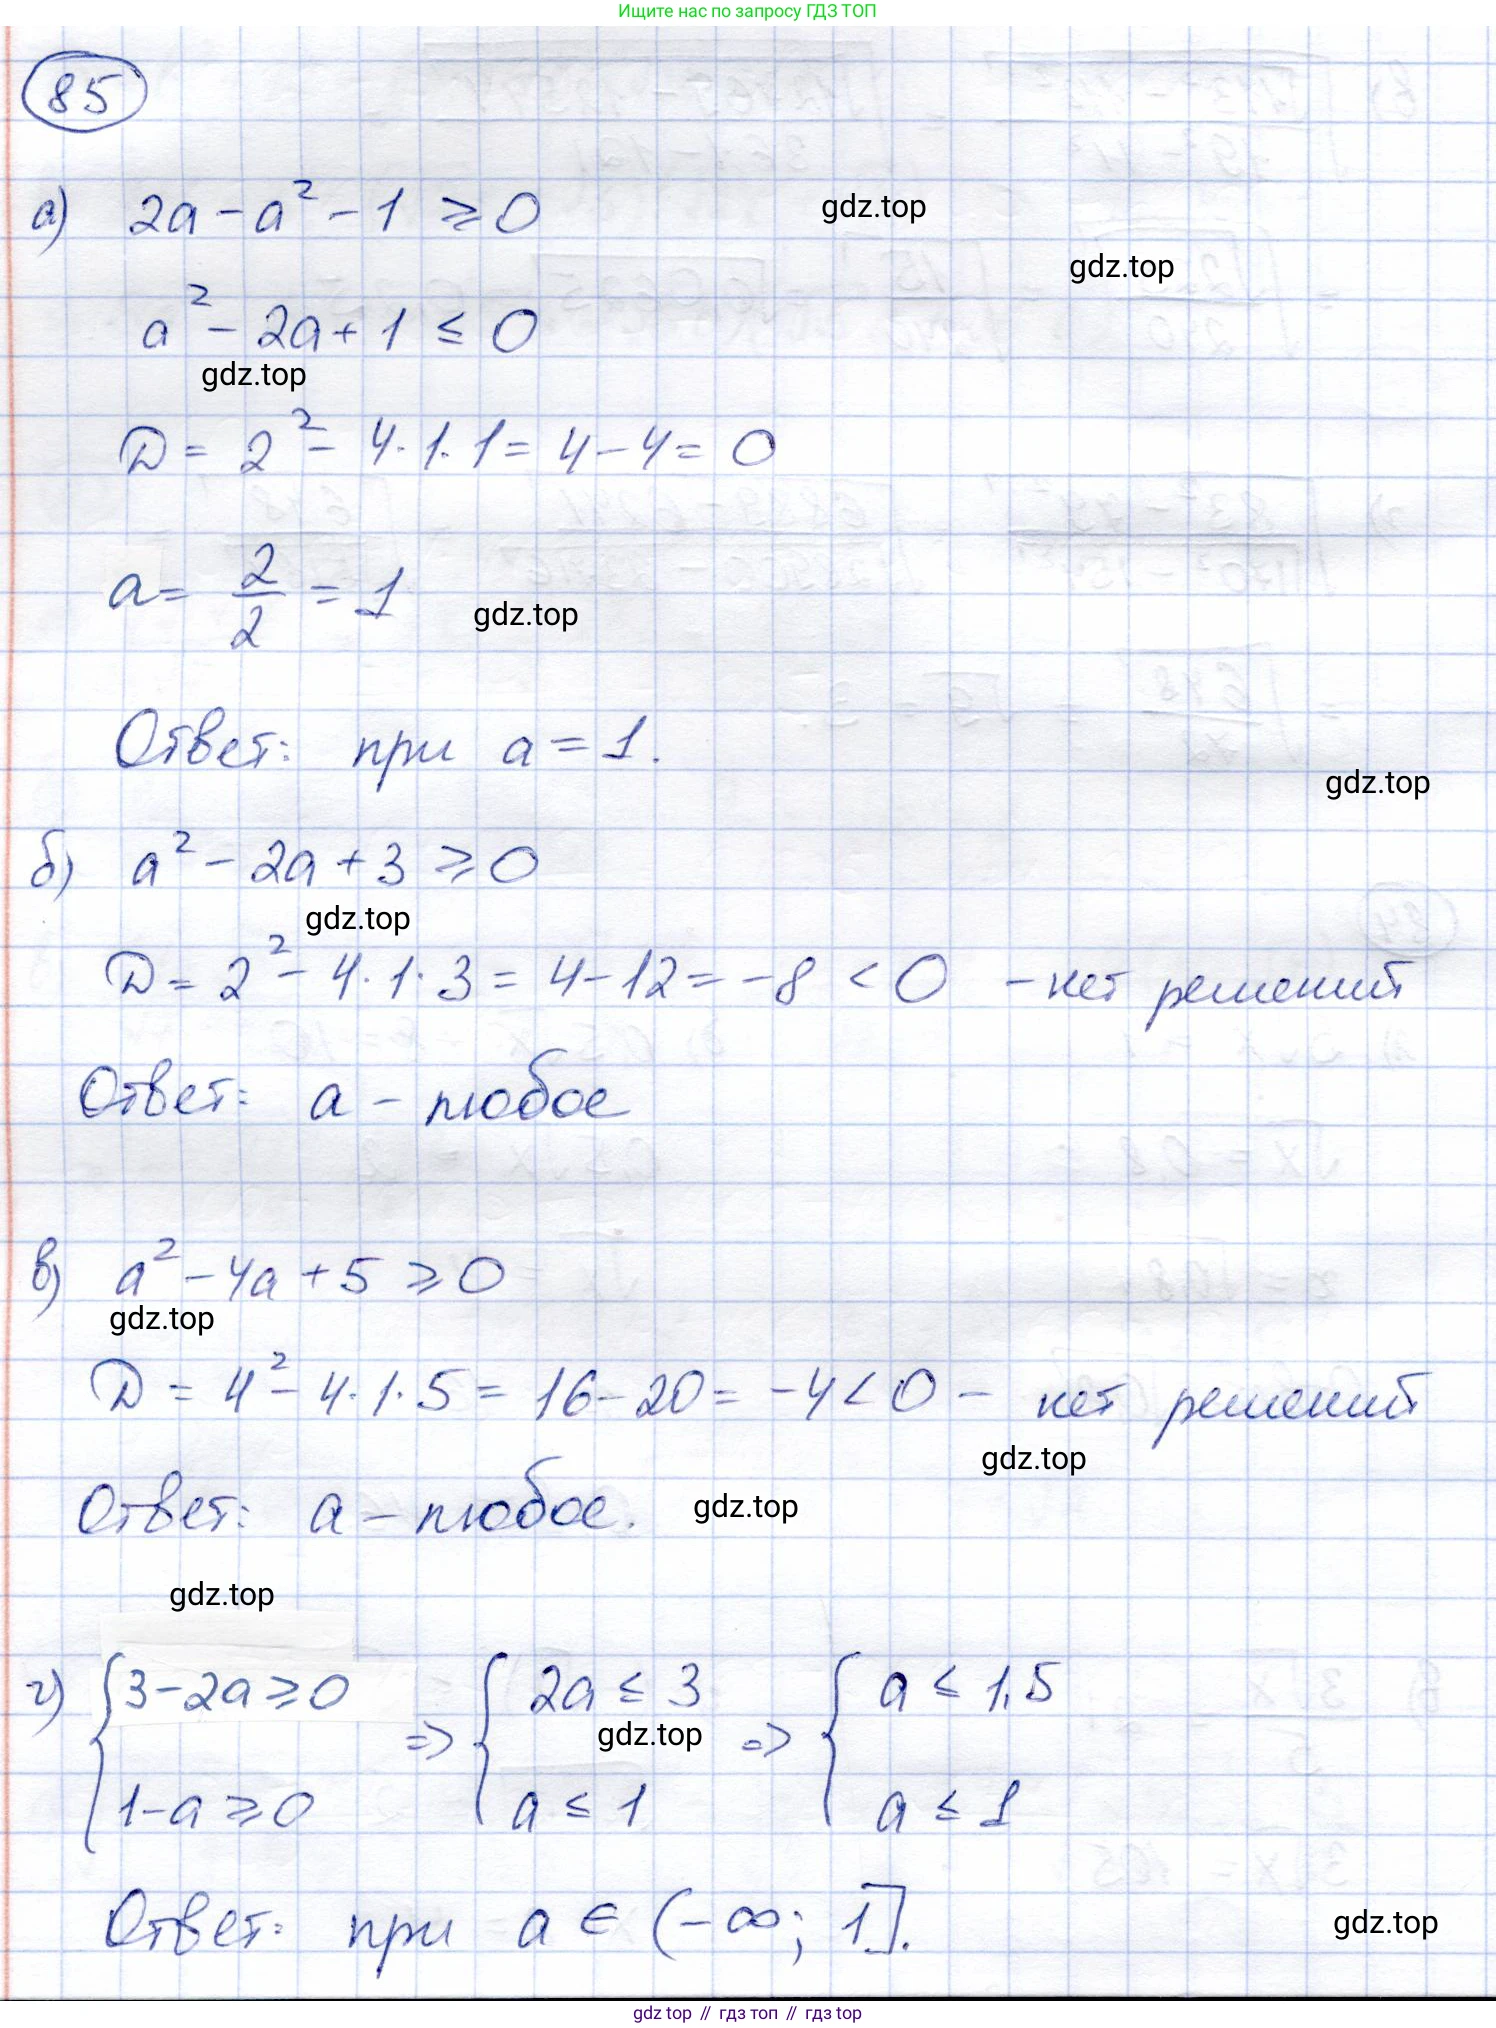 Ищите нас по запросу ГДЗ ТОП
85
а) 2a - a² - 1 ⩾ 0
gdz.top
gdz.top
a² - 2a + 1 ≤ 0
gdz.top
D = 2² - 4·1·1 = 4 - 4 = 0
a = 2/2 = 1
gdz.top
Ответ: при a = 1.
gdz.top
б) a² - 2a + 3 ⩾ 0
gdz.top
D = 2² - 4·1·3 = 4 - 12 = -8 < 0 - нет решений
Ответ: a - любое
в) a² - 4a + 5 ⩾ 0
gdz.top
D = 4² - 4·1·5 = 16 - 20 = -4 < 0 - нет решений
gdz.top
Ответ: a - любое.
gdz.top
gdz.top
г) { 3 - 2a ⩾ 0 => { 2a ≤ 3 => { a ≤ 1,5
gdz.top
1 - a ⩾ 0 a ≤ 1 a ≤ 1
Ответ: при a ∈ (-∞; 1].
gdz.top
gdz top // гдз топ // гдз top